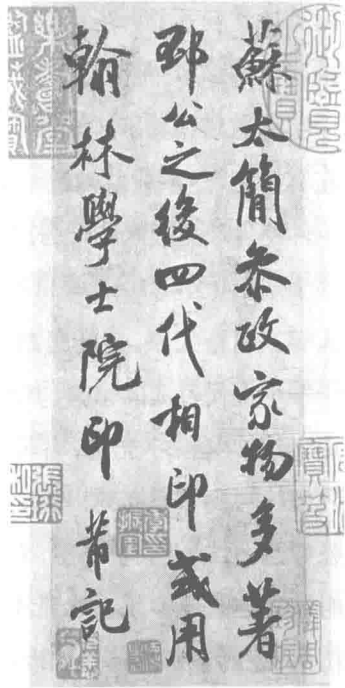 蘇太簡叅政家物多著
邳公之後四代相印或用
翰林學士院印 芾記